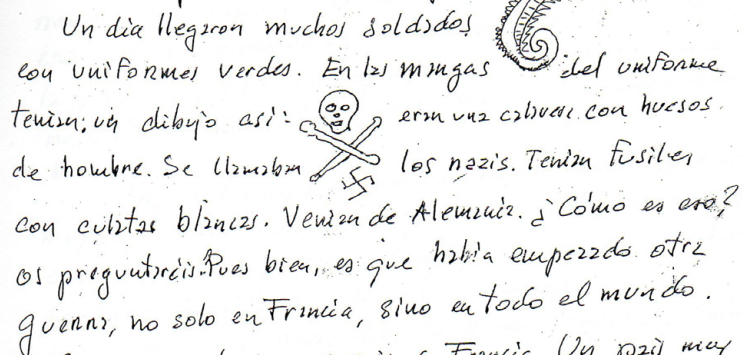 Un día llegaron muchos soldados
con uniformes verdes. En las mangas del uniforme
tenian; un dibujo así: eran una calavera con huesos
de hombre. Se llamaban los nazis. Tenian fusiles
con culatas blancas. Venian de Alemania. ¿Cómo es eso?
os preguntaréis. Pues bien, es que había empezado otra
guerra, no solo en Francia, sino en todo el mundo.
Francia. Un país muy